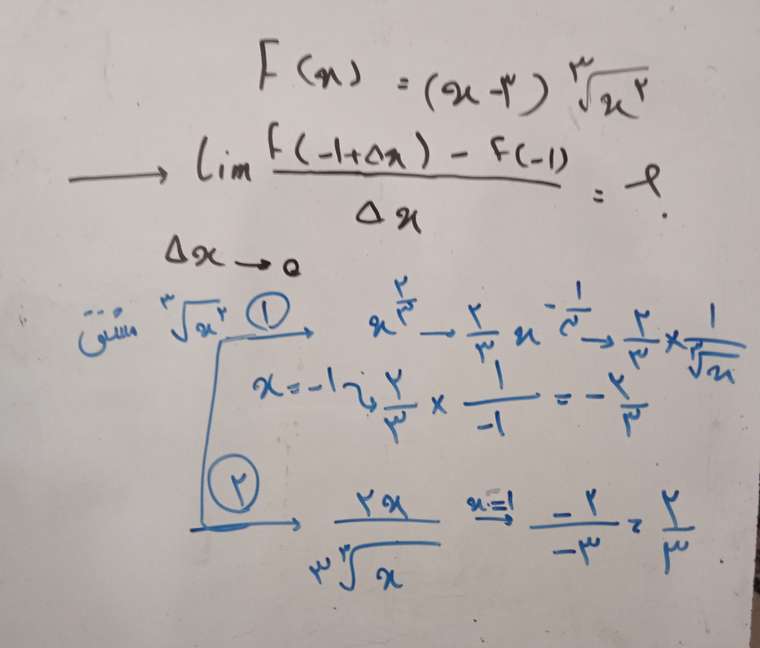 F(x) = (x-۳) ۳√x^۲
→ lim F(-1+Δx) - F(-1) / Δx = ?
Δx → 0
مشتق ۳√x^۲ ① → x^۲/۳ → ۲/۳ x^-1/۳ → ۲/۳ × 1/۳√x
x = -1 → ۲/۳ × 1/-1 = -۲/۳
② → ۲x / ۳ ۳√x → x=-1 → -۲/-۳ = ۲/۳